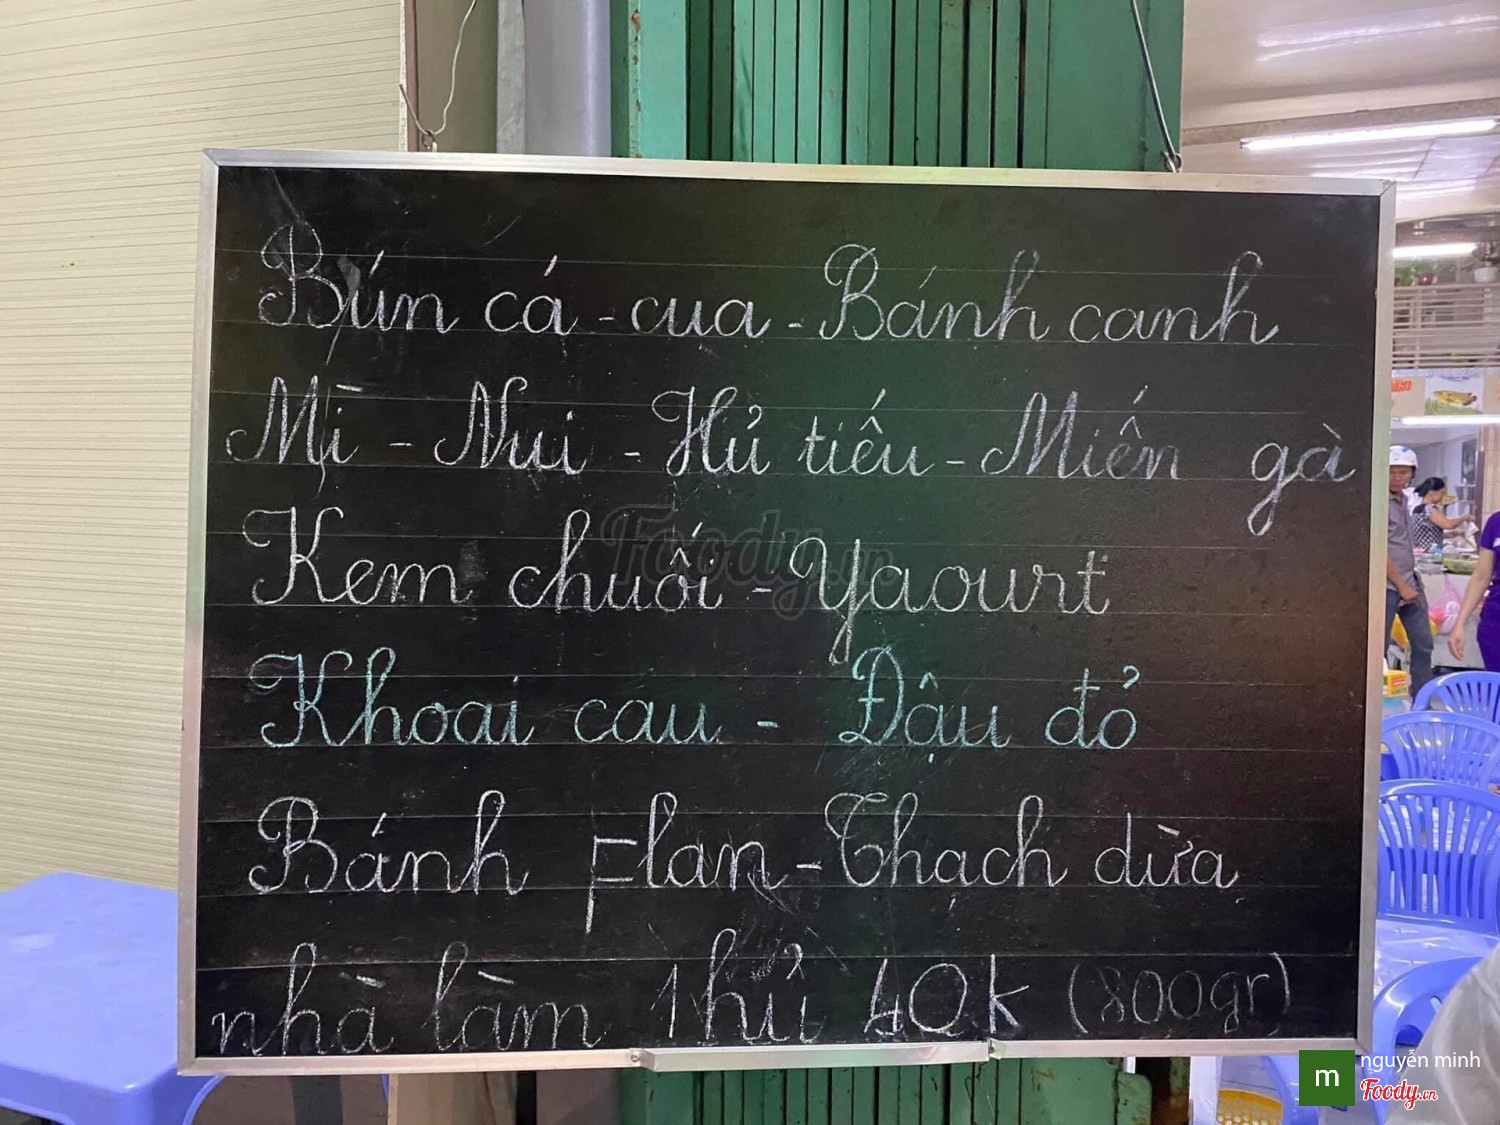 Bún cá - cua - Bánh canh
Mì - Nui - Hủ tiếu - Miến gà
Kem chuối - Yaourt
Khoai cau - Đậu đỏ
Bánh Flan - Thạch dừa
nhà làm 1hủ 40k (800gr)
Foody.vn
m
nguyễn minh
Foody.vn